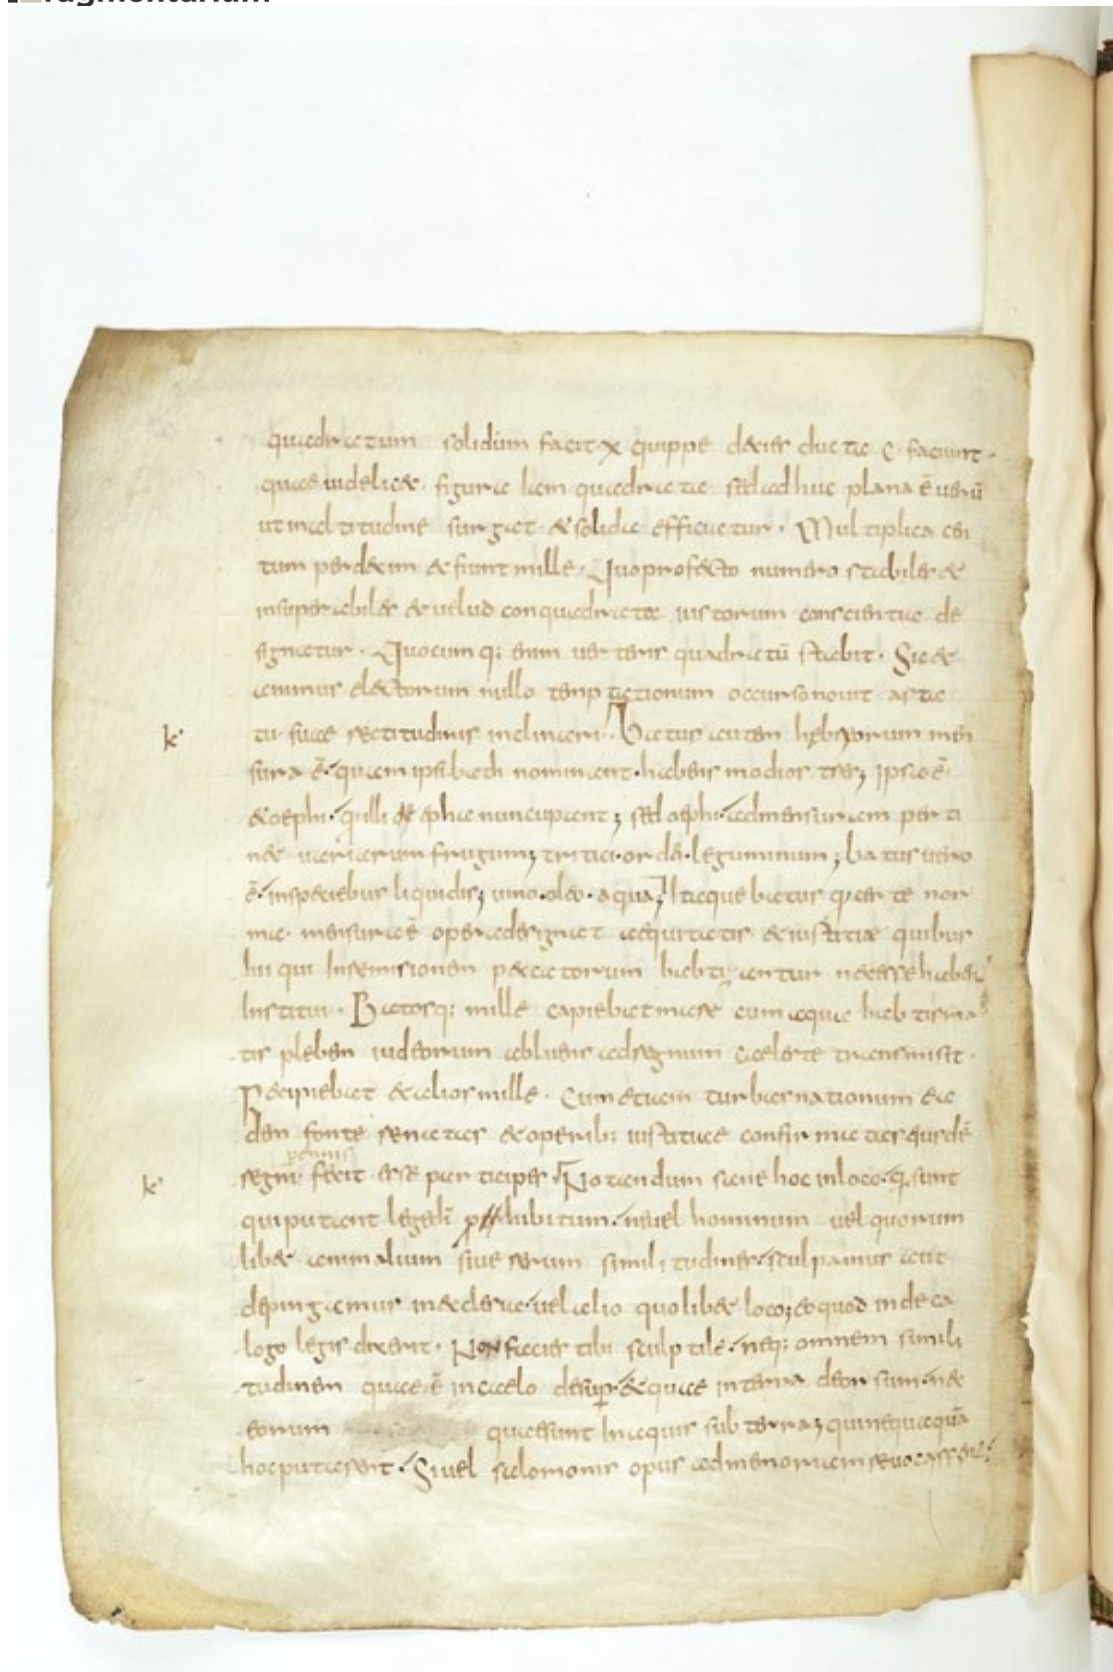 quadratum solidum facit x quippe decies ducta c faciunt.
quae uidelicet figura licem quadrata sed adhuc plana ē uerū
ut in altitudine surgat. & solida efficiatur. Multiplica cen
tum per decim & fiunt mille. Quo profecto numero stabiles &
insuperabiles & uelud conquadratae iustorum conscientiae de
signatur. Quocumq; enim uerteris quadratū stabit. Sic &
animus electorum nullo temptationum occursonouit a statu
tu suae rectitudinis inclinari. Batus autem hębreorum men
sura ē. quam ipsi bath nominant. habens modios tres; ipsa ē
& oephi. q illi epha nuncupant; sed oephi. ad mensuram perti
net aridarum frugum; tritici. ordei. leguminum; batus uero
ē. in speciebus liquidis; uino. oleo. aqua; Itaque batus
mensurae opera designat aequitatis & iustitiae quibus
hii qui In remisionem peccatorum babtizantur necesse habent
Institui. Batosq; mille capiebat mare cum aqua babtisma
tis plebem iudeorum abluens ad regnum caeleste transmisit.
Recipiebat & alios mille. Cum etiam turbas nationum ea
dem fonte renatas & operib; iustitiae confirmatas eiusdē
perennis
regni fecit esse participes. Notandum sane hoc in loco. q; sunt
qui putant lege dī prohibitum. ne uel hominum uel quorum
libet animalium siue rerum similitudines. sculpamus aut
depingamus in aeclesia. uel alio quolibet loco; eo quod in deca
logo legis dixerit. Non facies tibi sculptile. neq; omnem simili
tudinem quae ē in caelo desuper. & quae in terra deorsum. nec
eorum quae sunt In aquis sub terra; qui nequaquā
hoc putarent. Si uel salomonis opus ad memoriam reuocassent.
k
k